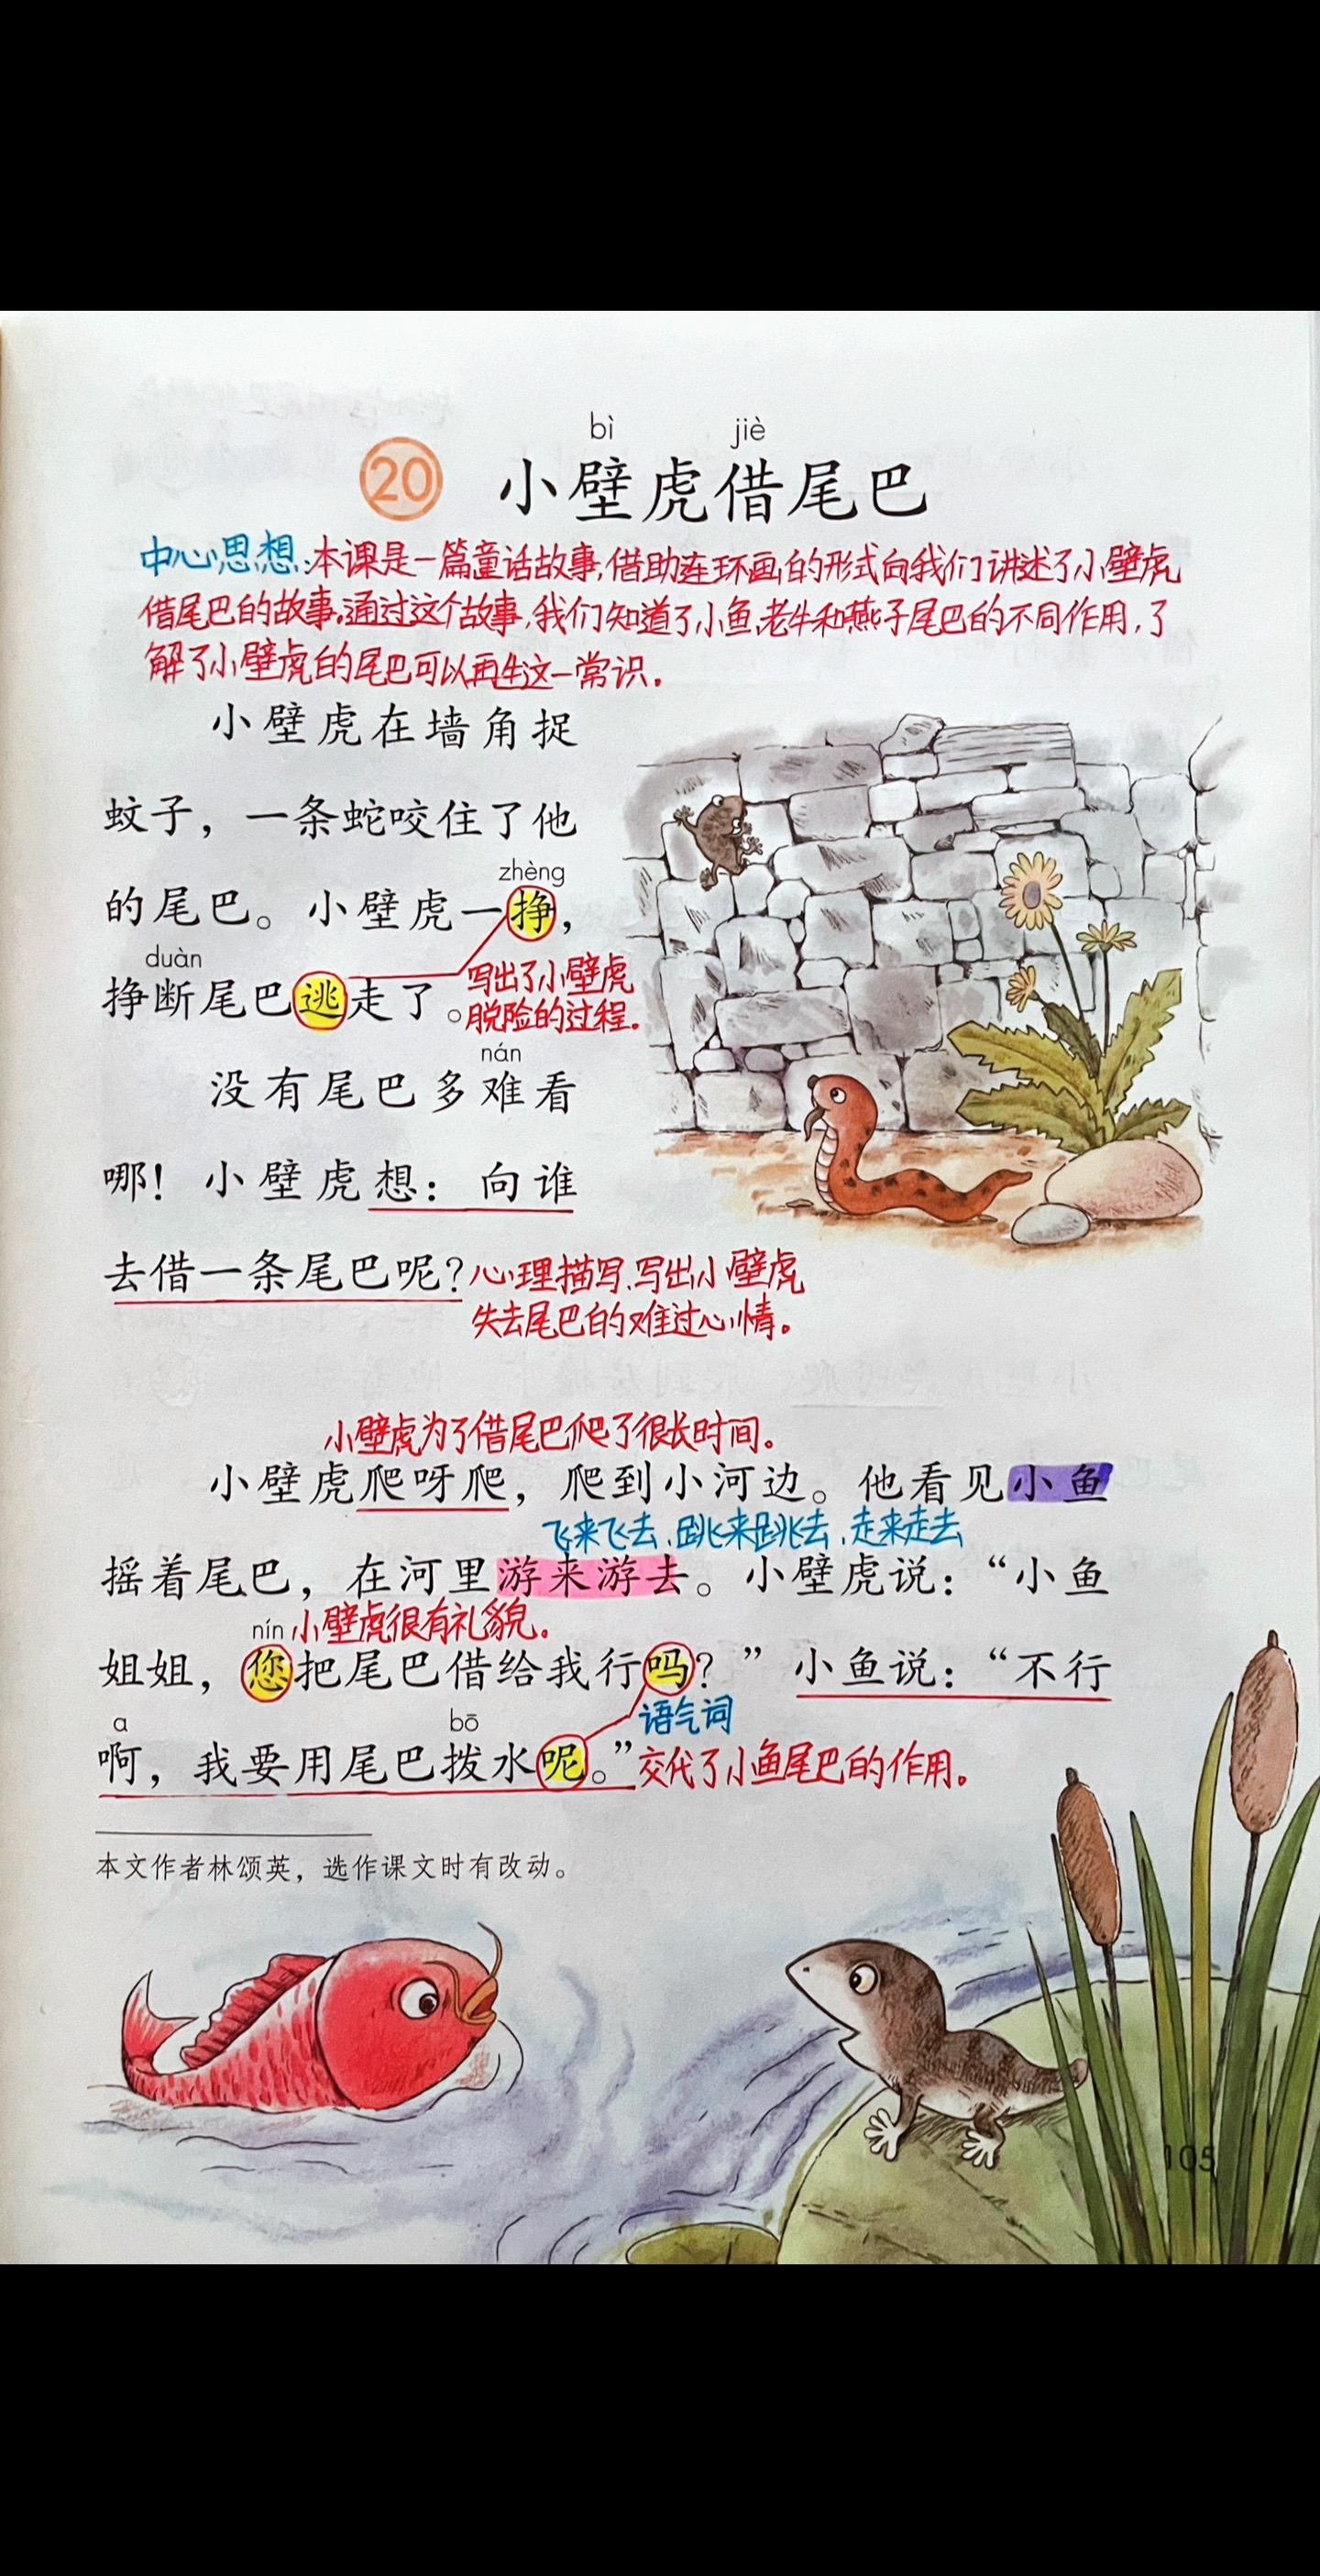 bì jiè
20 小壁虎借尾巴
中心思想:本课是一篇童话故事,借助连环画的形式向我们讲述了小壁虎
借尾巴的故事。通过这个故事,我们知道了小鱼、老牛和燕子尾巴的不同作用,了
解了小壁虎的尾巴可以再生这一常识。
小壁虎在墙角捉
蚊子，一条蛇咬住了他
zhèng
的尾巴。小壁虎一挣，
duàn
挣断尾巴逃走了。
写出了小壁虎
脱险的过程。
nán
没有尾巴多难看
哪！小壁虎想：向谁
去借一条尾巴呢？
心理描写,写出小壁虎
失去尾巴的难过心情。
小壁虎为了借尾巴爬了很长时间。
小壁虎爬呀爬，爬到小河边。他看见小鱼
飞来飞去、跳来跳去、走来走去
摇着尾巴，在河里游来游去。小壁虎说：“小鱼
nín 小壁虎很有礼貌。
姐姐，您把尾巴借给我行吗？”小鱼说：“不行
ɑ bō 语气词
啊，我要用尾巴拨水呢。”交代了小鱼尾巴的作用。
本文作者林颂英，选作课文时有改动。
105